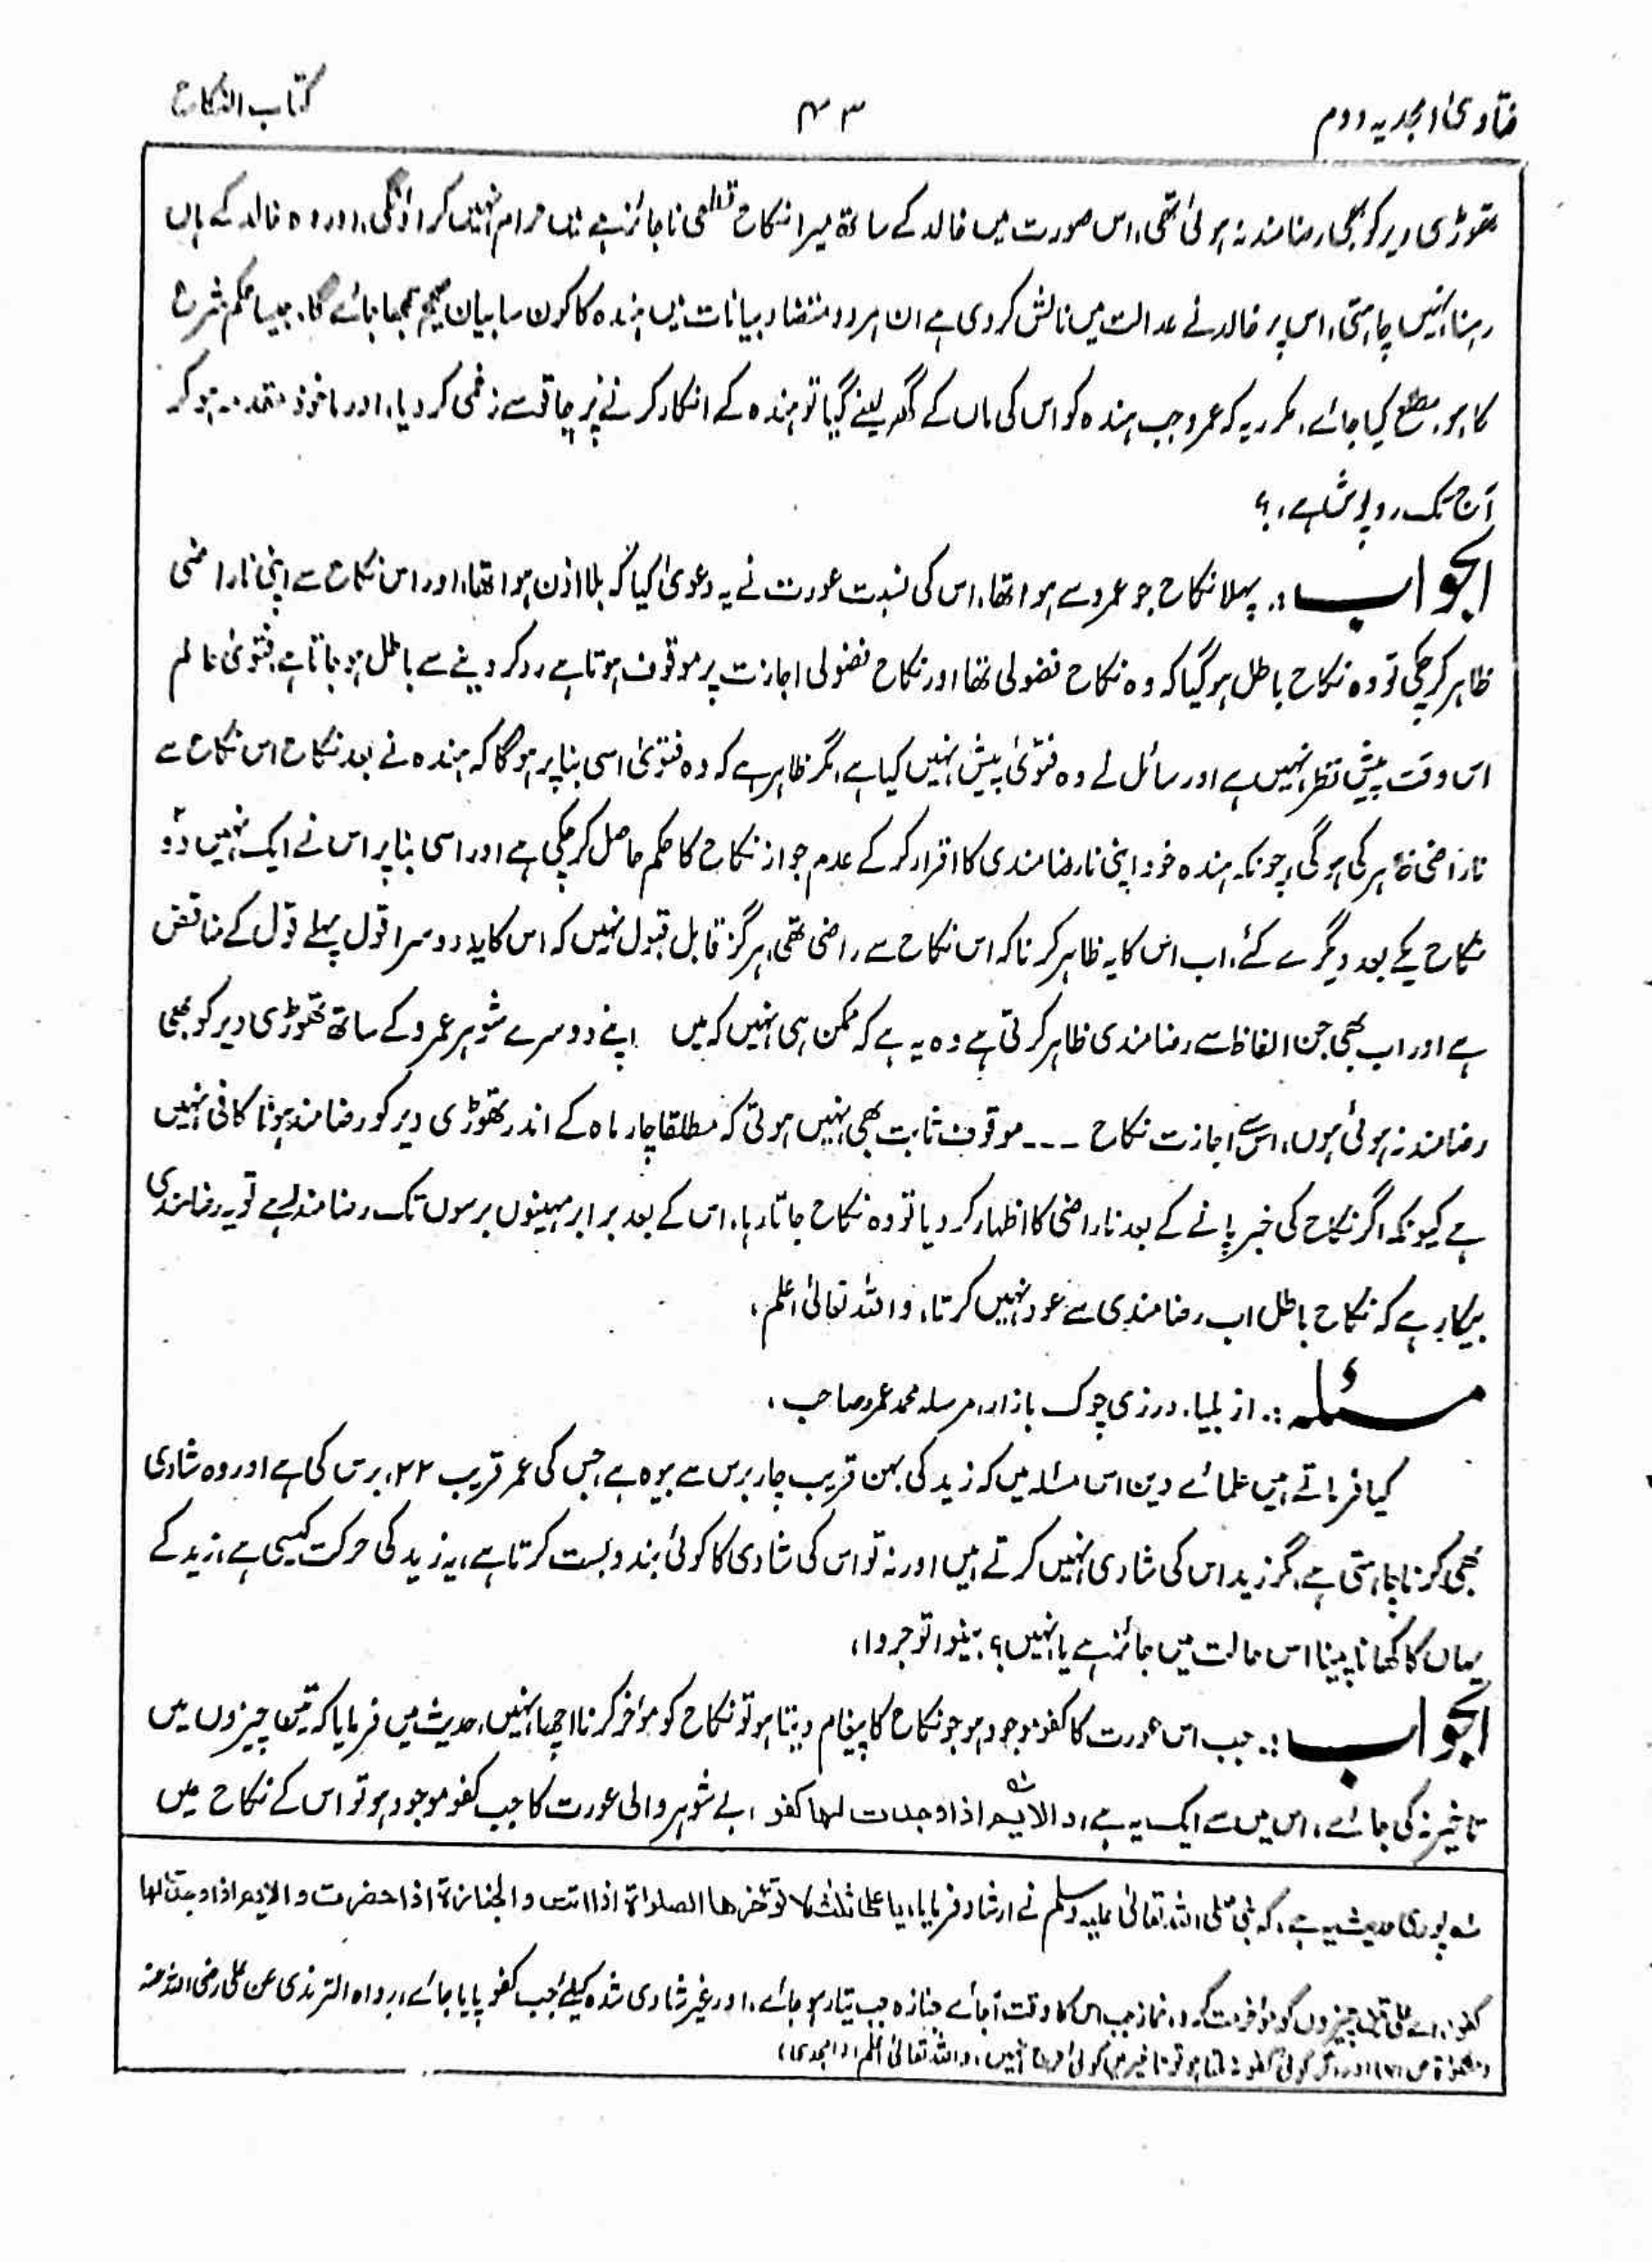 فتاویٰ امجدیہ دوم ۴۳ کتاب النکاح
تھوڑی دیر کو بھی رضامند نہ ہوئی تھی، اس صورت میں خالد کے ساتھ میرا نکاح قطعی ناجائز ہے میں حرام نہیں کراؤنگی، اور وہ خالد کے ہاں
رہنا نہیں چاہتی، اس پر خالد نے عدالت میں نالش کردی ہے ان ہر دو متضاد بیانات میں ہندہ کا کون سا بیان صحیح سمجھا جائے گا، جیسا حکم شرع
کا ہو مطلع کیا جائے، مکرر یہ کہ عمرو جب ہندہ کو اس کی ماں کے گھر لینے گیا تو ہندہ کے انکار کرنے پر چاقو سے زخمی کردیا، اور ماخوذ مقدمہ ہوکر
آج تک روپوش ہے، ؟
الجواب :۔ پہلا نکاح جو عمرو سے ہوا تھا، اس کی نسبت عورت نے یہ دعویٰ کیا کہ بلا اذن ہوا تھا، اور اس نکاح سے اپنی ناراضی
ظاہر کرچکی تو وہ نکاح باطل ہوگیا کہ وہ نکاح فضولی تھا اور نکاح فضولی اجازت پر موقوف ہوتا ہے رد کردینے سے باطل ہوجاتا ہے، فتویٰ عالم
اس وقت پیش نظر نہیں ہے اور سائل نے وہ فتویٰ پیش نہیں کیا ہے، مگر ظاہر ہے کہ وہ فتویٰ اسی بنا پر ہوگا کہ ہندہ نے بعد نکاح اس نکاح سے
ناراضی ظاہر کی ہوگی، چونکہ ہندہ خود اپنی نارضامندی کا اقرار کرکے عدم جواز نکاح کا حکم حاصل کرچکی ہے اور اسی بنا پر اس نے ایک نہیں دو
نکاح یکے بعد دیگرے کئے، اب اس کا یہ ظاہر کرنا کہ اس نکاح سے راضی تھی، ہرگز قابل قبول نہیں کہ اس کا یہ دوسرا قول پہلے قول کے مناقض
ہے اور اب بھی جن الفاظ سے رضامندی ظاہر کرتی ہے وہ یہ ہے کہ ممکن ہی نہیں کہ میں اپنے دوسرے شوہر عمرو کے ساتھ تھوڑی دیر کو بھی
رضامند نہ ہوئی ہوں، اس سے اجازت نکاح --- موقوف ثابت بھی نہیں ہوتی کہ مطلقا چار ماہ کے اندر تھوڑی دیر کو رضامند ہونا کافی نہیں
ہے کیونکہ اگر نکاح کی خبر پانے کے بعد ناراضی کا اظہار کردیا تو وہ نکاح جاتا رہا، اس کے بعد برابر مہینوں برسوں تک رضامند رہے تو یہ رضامندی
بیکار ہے کہ نکاح باطل اب رضامندی سے عود نہیں کرتا، واللہ تعالیٰ اعلم،
مسئلہ :۔ از بلیا، درزی چوک بازار، مرسلہ محمد عمر صاحب،
کیا فرماتے ہیں علمائے دین اس مسئلہ میں کہ زید کی بہن قریب چار برس سے بیوہ ہے، جس کی عمر قریب ۲۲، برس کی ہے اور وہ شادی
بھی کرنا چاہتی ہے، مگر زید اس کی شادی نہیں کرتے ہیں اور نہ تو اس کی شادی کا کوئی بندوبست کرتا ہے، یہ زید کی حرکت کیسی ہے، زید کے
یہاں کا کھانا پینا اس حالت میں جائز ہے یا نہیں؟ بینوا توجروا،
الجواب :۔ جب اس عورت کا کفو موجود ہو جو نکاح کا پیغام دیتا ہو تو نکاح کو مؤخر کرنا اچھا نہیں، حدیث میں فرمایا کہ تین چیزوں میں
تاخیر نہ کی جائے، اس میں سے ایک یہ ہے، والایم اذا وجدت لھا کفو، بے شوہر والی عورت کا جب کفو موجود ہو تو اس کے نکاح میں
پوری حدیث یہ ہے، کہ نبی صلی اللہ تعالیٰ علیہ وسلم نے ارشاد فرمایا، یا علی ثلث لا تؤخرھا الصلوٰۃ اذا اتت والجنازۃ اذا حضرت والایم اذا وجدت لھا
کفو، اے علی تین چیزوں کو مؤخر مت کرو، نماز جب اس کا وقت آجائے جنازہ جب تیار ہوجائے، اور غیر شادی شدہ کیلئے جب کفو پایا جائے، رواہ الترمذی عن علی رضی اللہ عنہ
اور اگر کوئی کفو نہ ملتا ہو تو تاخیر میں کوئی حرج نہیں، واللہ تعالیٰ اعلم (امجدی)